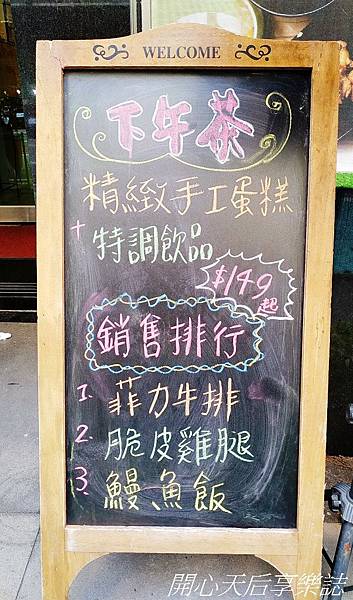 WELCOME
下午茶
精緻手工蛋糕
+
特調飲品
$149起
銷售排行
1. 菲力牛排
2. 脆皮雞腿
3. 鰻魚飯
開心天后享樂誌